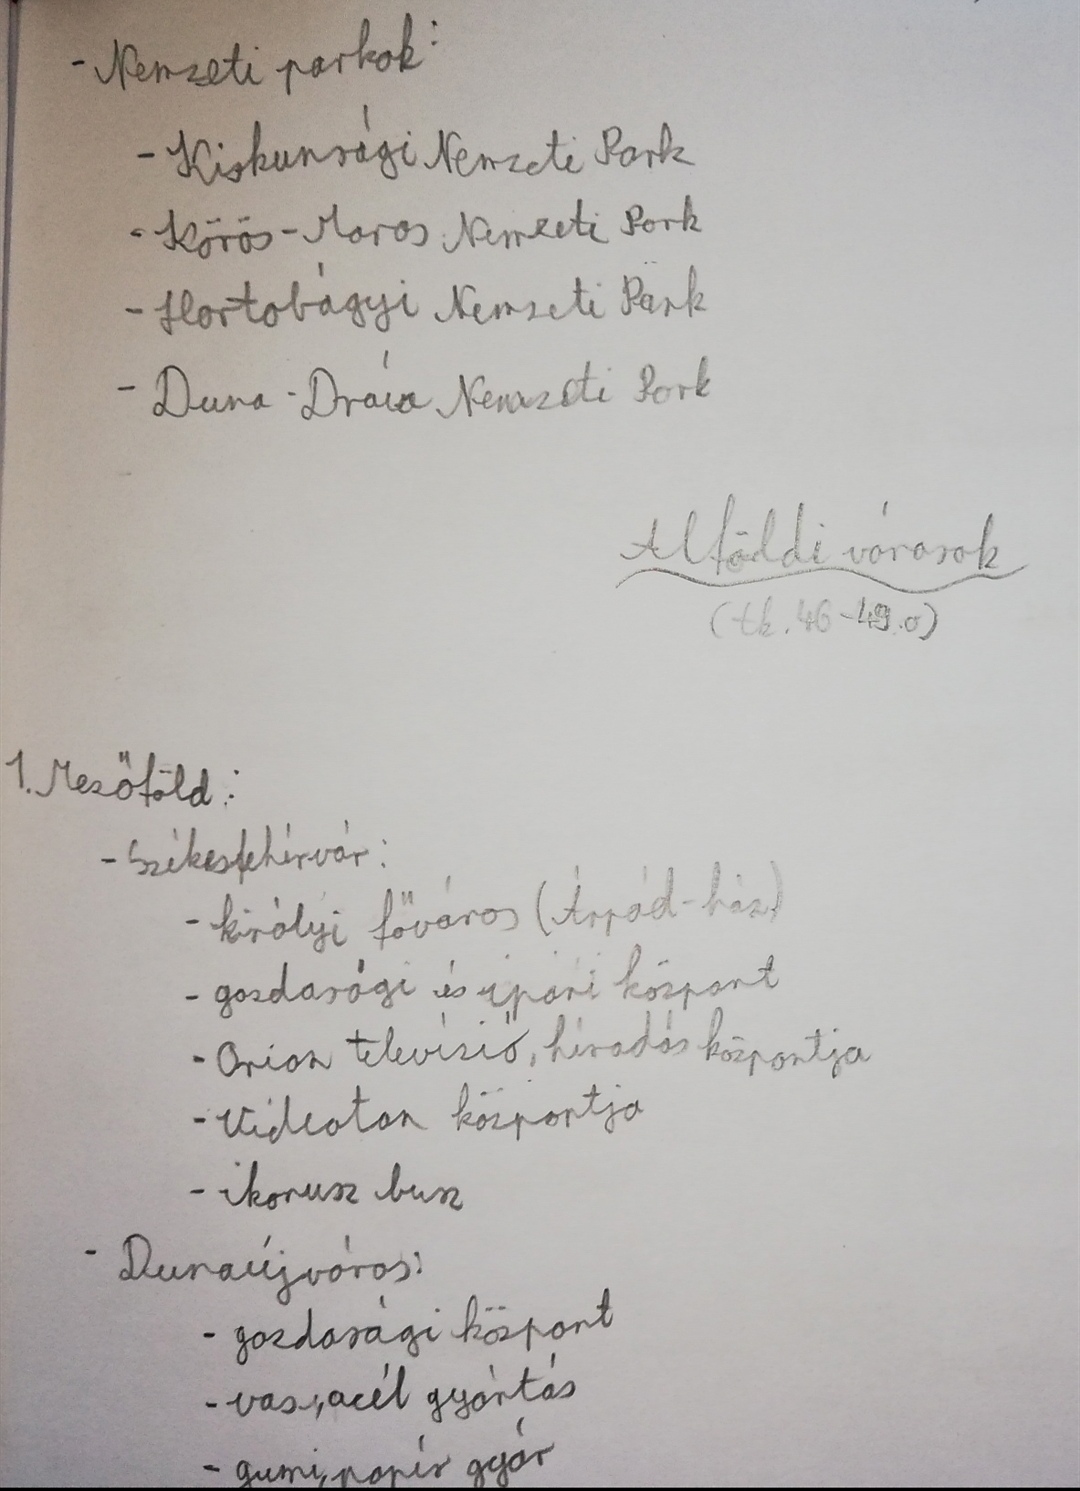 - Nemzeti parkok:
- Kiskunsági Nemzeti Park
- Körös-Maros Nemzeti Park
- Hortobágyi Nemzeti Park
- Duna-Dráva Nemzeti Park
Alföldi városok
(tk. 46-49.o)
1. Mezőföld:
- Székesfehérvár:
- királyi főváros (Árpád-ház)
- gazdasági és ipari központ
- Orion televízió, híradás központja
- Videoton központja
- ikarusz busz
- Dunaújváros:
- gazdasági központ
- vas, acél gyártás
- gumi, papír gyár